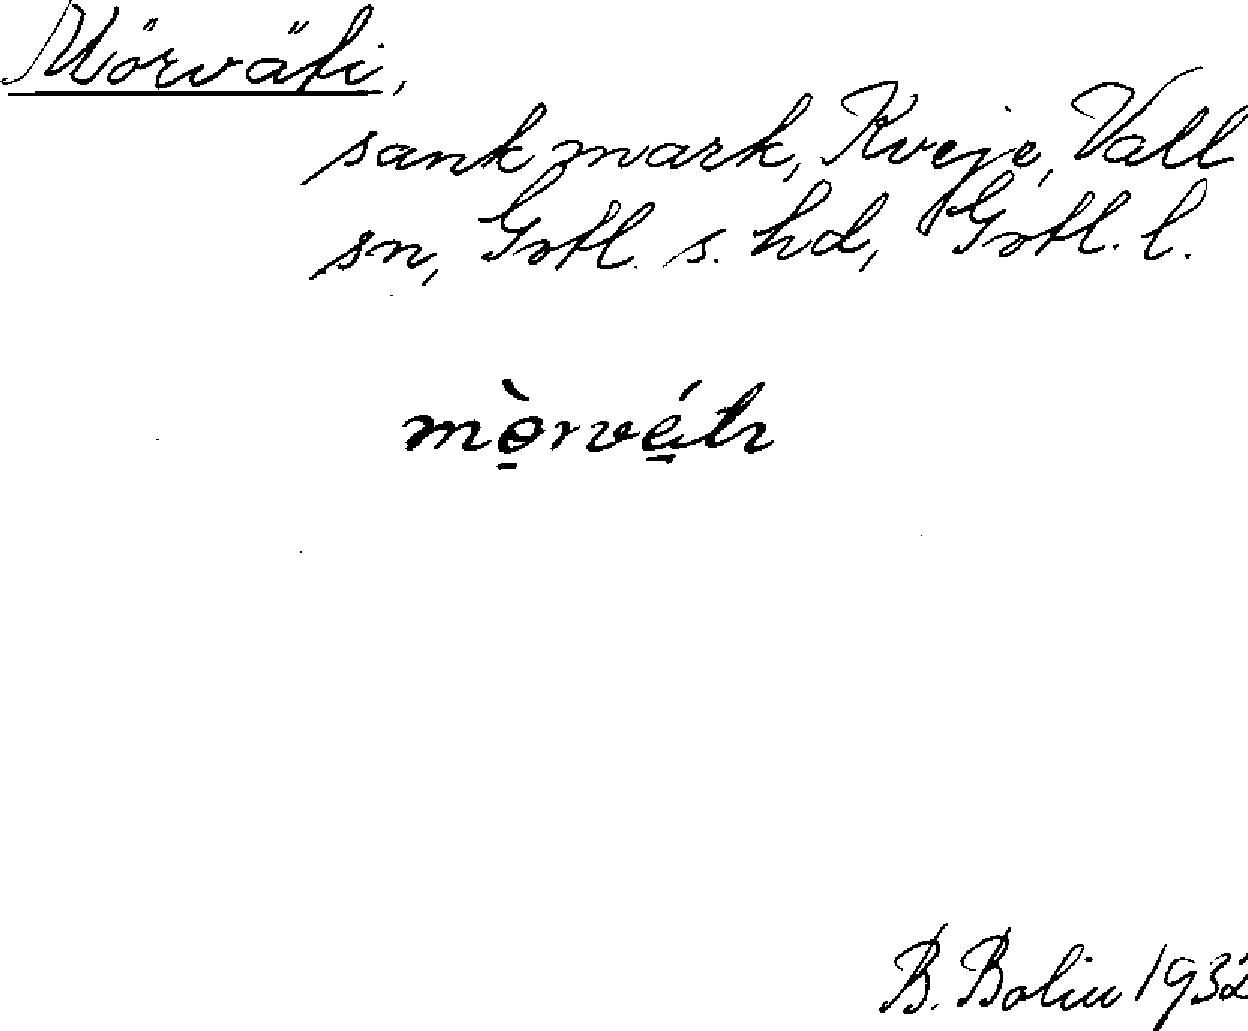 Mörväti,
sank mark, Kveje, Vall
sn, Gotl. s. hd, Gotl. l.
B. Bolin 1932